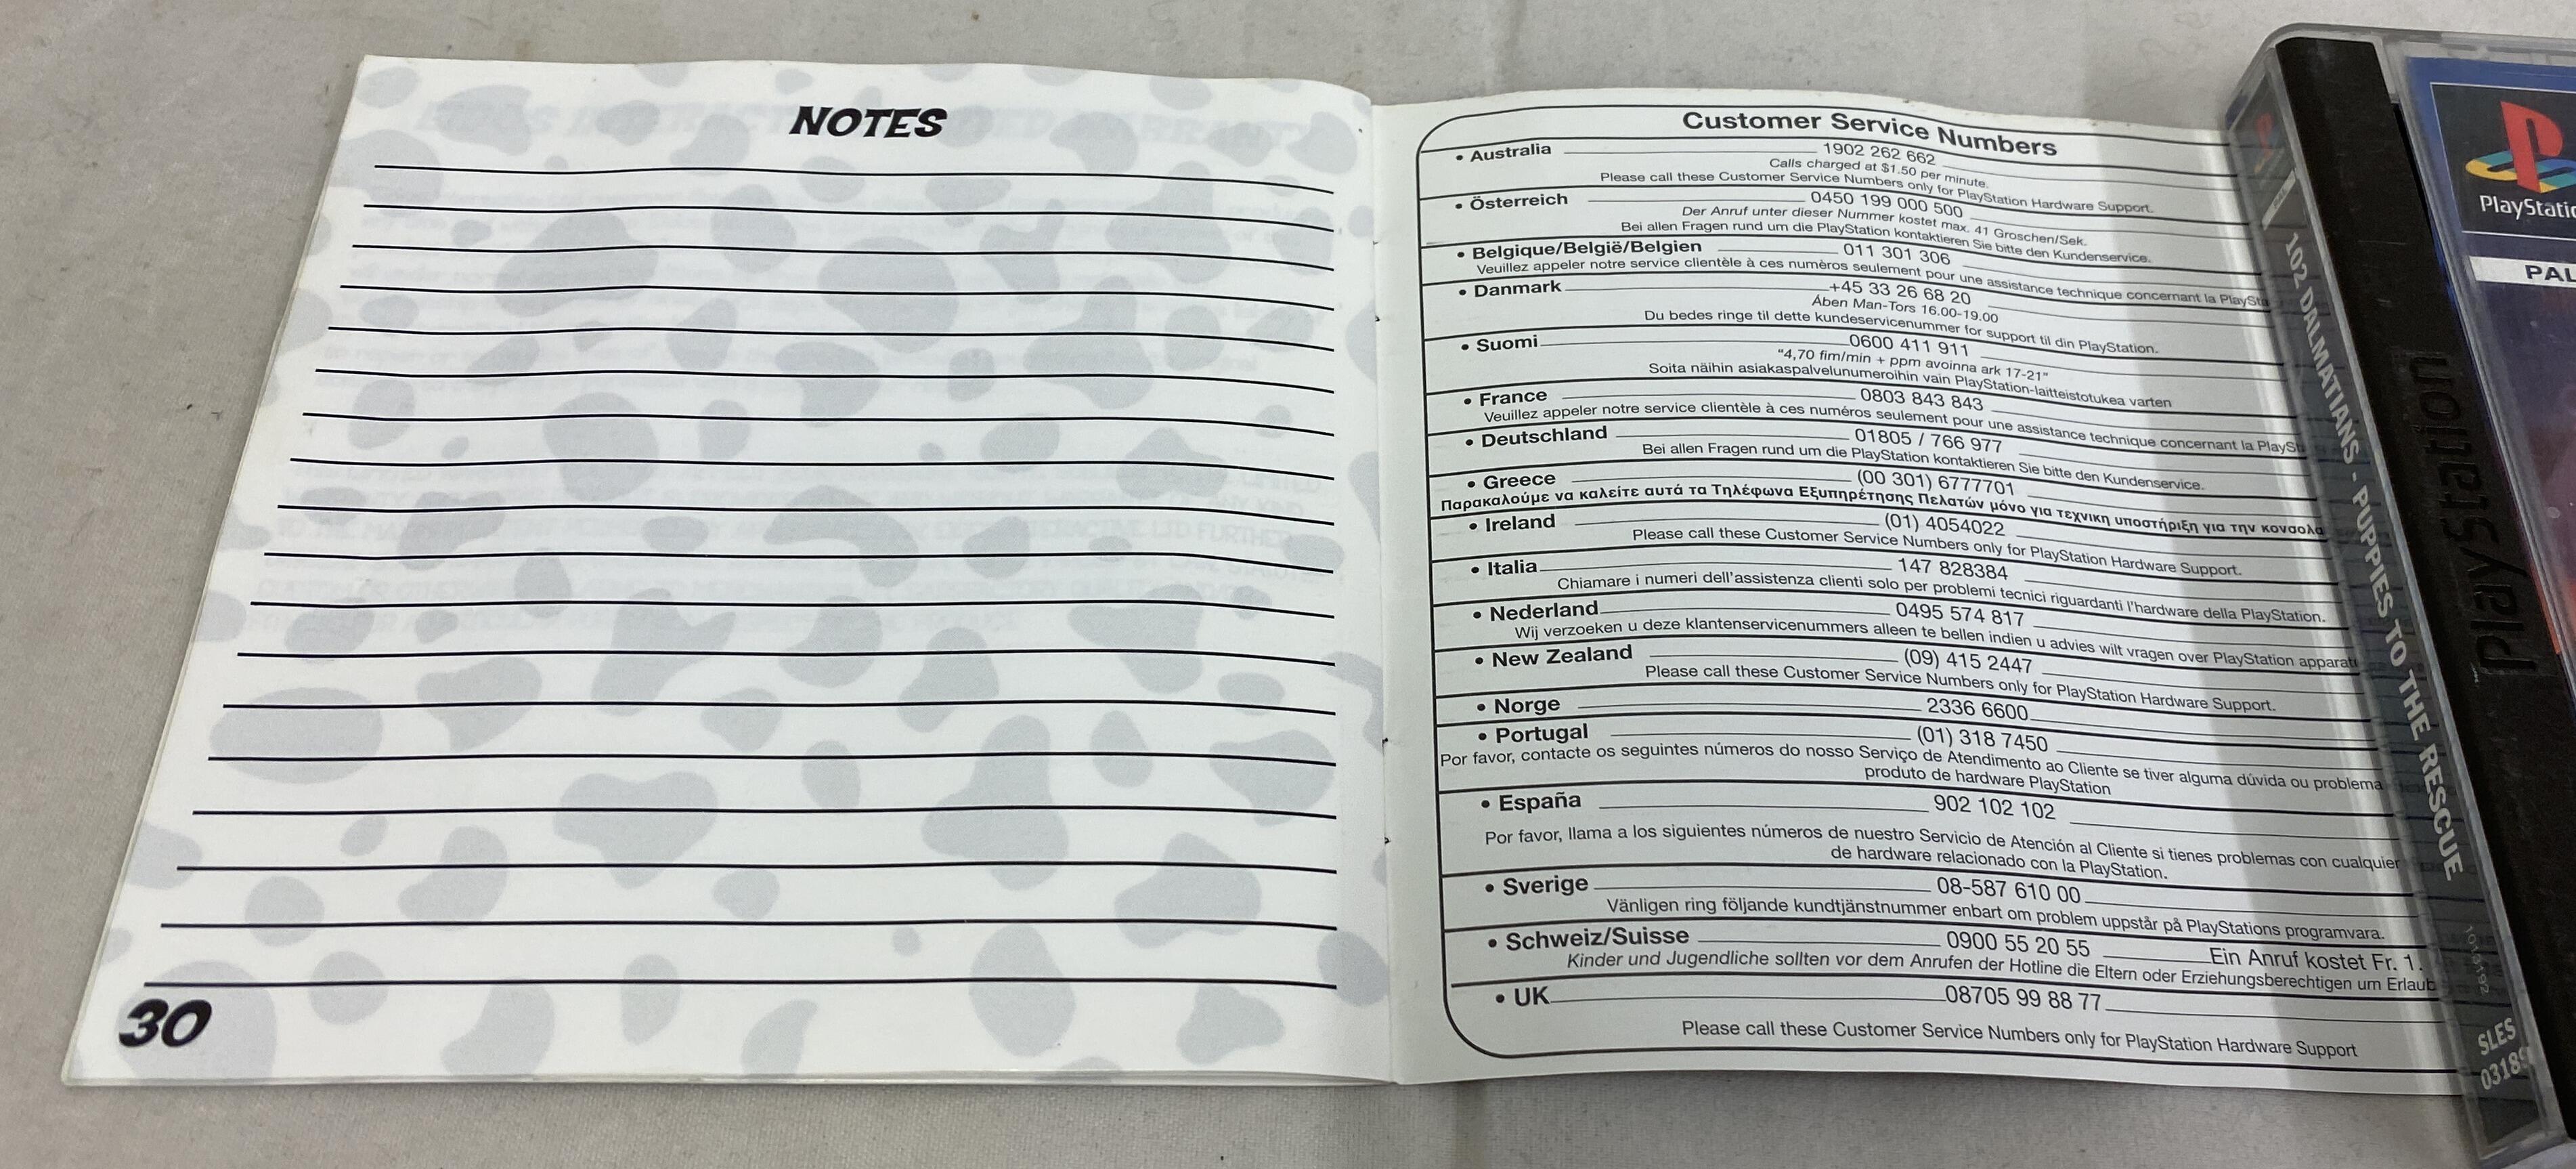 NOTES
30
Customer Service Numbers
• Australia 1902 262 662
Calls charged at $1.50 per minute.
Please call these Customer Service Numbers only for PlayStation Hardware Support.
• Österreich 0450 199 000 500
Der Anruf unter dieser Nummer kostet max. 41 Groschen/Sek.
Bei allen Fragen rund um die PlayStation kontaktieren Sie bitte den Kundenservice.
• Belgique/België/Belgien 011 301 306
Veuillez appeler notre service clientèle à ces numèros seulement pour une assistance technique concernant la
• Danmark +45 33 26 68 20
Åben Man-Tors 16.00-19.00
Du bedes ringe til dette kundeservicenummer for support til din PlayStation.
• Suomi 0600 411 911
"4,70 fim/min + ppm avoinna ark 17-21"
Soita näihin asiakaspalvelunumeroihin vain PlayStation-laitteistotukea varten
• France 0803 843 843
Veuillez appeler notre service clientèle à ces numéros seulement pour une assistance technique concernant la
• Deutschland 01805 / 766 977
Bei allen Fragen rund um die PlayStation kontaktieren Sie bitte den Kundenservice.
• Greece (00 301) 6777701
Παρακαλούμε να καλείτε αυτά τα Τηλέφωνα Εξυπηρέτησης Πελατών μόνο για τεχνικη υποστήριξη για την κονσολα
• Ireland (01) 4054022
Please call these Customer Service Numbers only for PlayStation Hardware Support.
• Italia 147 828384
Chiamare i numeri dell'assistenza clienti solo per problemi tecnici riguardanti l'hardware della PlayStation.
• Nederland 0495 574 817
Wij verzoeken u deze klantenservicenummers alleen te bellen indien u advies wilt vragen over PlayStation
• New Zealand (09) 415 2447
Please call these Customer Service Numbers only for PlayStation Hardware Support.
• Norge 2336 6600
• Portugal (01) 318 7450
Por favor, contacte os seguintes números do nosso Serviço de Atendimento ao Cliente se tiver alguma dúvida ou problema
produto de hardware PlayStation
• España 902 102 102
Por favor, llama a los siguientes números de nuestro Servicio de Atención al Cliente si tienes problemas con cualquier
de hardware relacionado con la PlayStation.
• Sverige 08-587 610 00
Vänligen ring följande kundtjänstnummer enbart om problem uppstår på PlayStations programvara.
• Schweiz/Suisse 0900 55 20 55 Ein Anruf kostet Fr. 1.
Kinder und Jugendliche sollten vor dem Anrufen der Hotline die Eltern oder Erziehungsberechtigen um
• UK 08705 99 88 77
Please call these Customer Service Numbers only for PlayStation Hardware Support
102 DALMATIANS - PUPPIES TO THE RESCUE
SLES
PlayStation
PAL